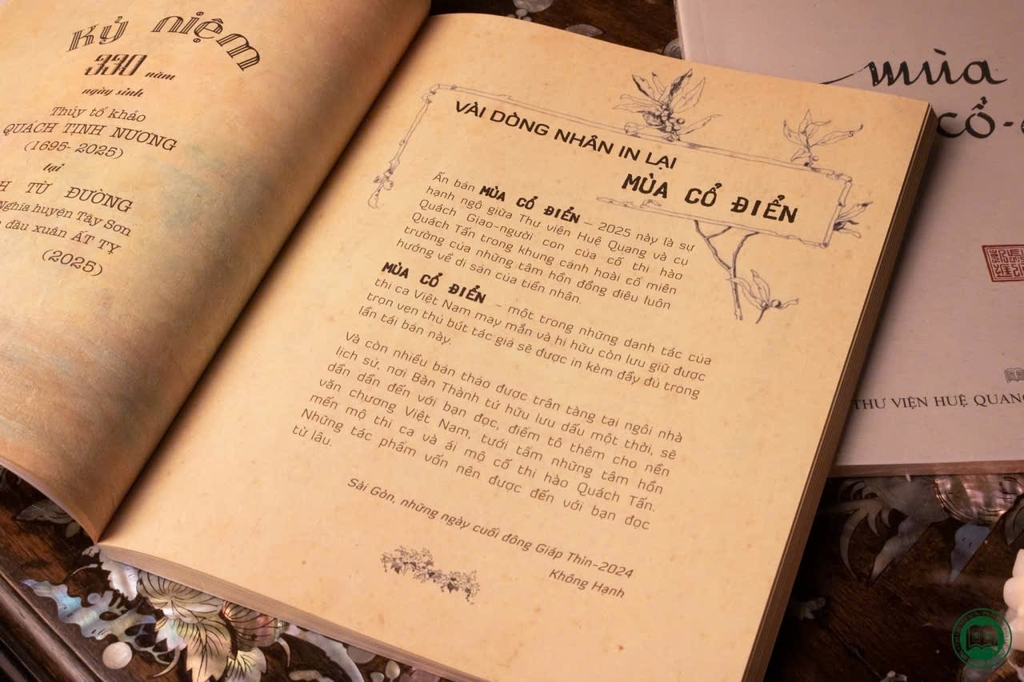 Kỷ niệm
330 năm
ngày sinh
Thủy tổ khảo
QUÁCH TỊNH NƯƠNG
(1695-2025)
tại
TỪ ĐƯỜNG
huyện Tây Sơn
đầu xuân ẤT TỴ
(2025)
VÀI DÒNG NHÂN IN LẠI
MÙA CỔ ĐIỂN
Ấn bản MÙA CỔ ĐIỂN – 2025 này là sự
hạnh ngộ giữa Thư viện Huệ Quang và cụ
Quách Giao-người con của cố thi hào
Quách Tấn trong khung cảnh hoài cổ miên
trường của những tâm hồn đồng điệu luôn
hướng về di sản của tiền nhân.
MÙA CỔ ĐIỂN – một trong những danh tác của
thi ca Việt Nam may mắn và hi hữu còn lưu giữ được
trọn vẹn thủ bút tác giả sẽ được in kèm đầy đủ trong
lần tái bản này.
Và còn nhiều bản thảo được trân tàng tại ngôi nhà
lịch sử, nơi Bàn Thành tứ hữu lưu dấu một thời, sẽ
dần dần đến với bạn đọc, điểm tô thêm cho nền
văn chương Việt Nam, tưới tắm những tâm hồn
mến mộ thi ca và ái mộ cố thi hào Quách Tấn.
Những tác phẩm vốn nên được đến với bạn đọc
từ lâu.
Sài Gòn, những ngày cuối đông Giáp Thìn-2024
Không Hạnh
mùa
cổ-
THƯ VIỆN HUỆ QUANG